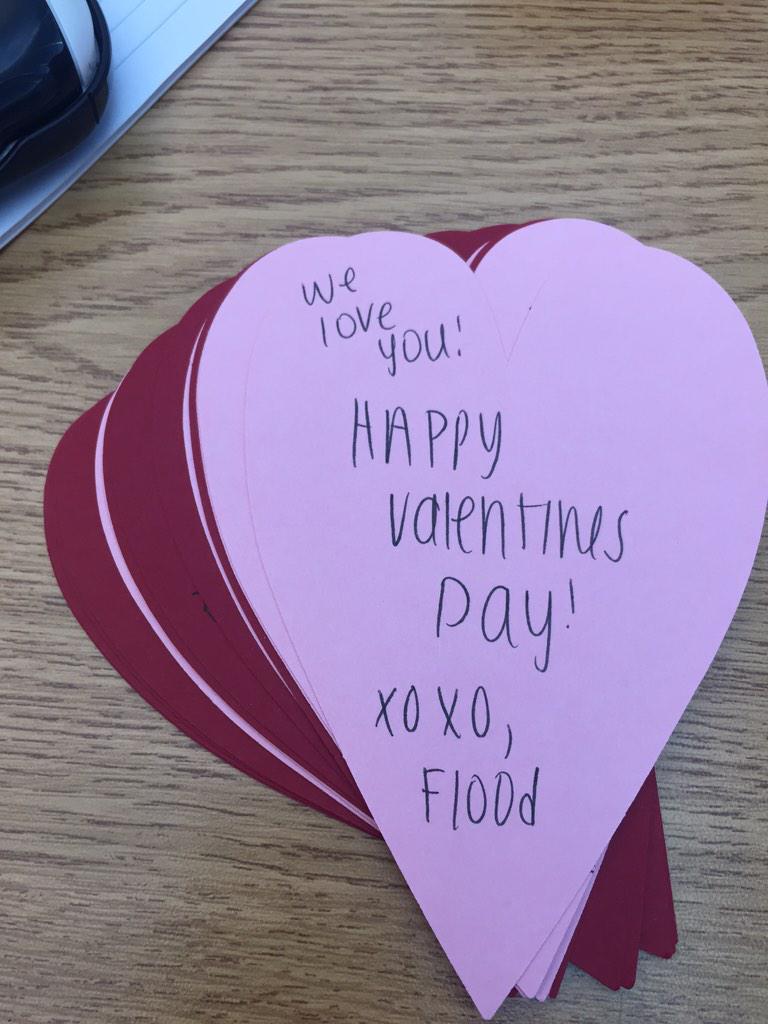 We
love
you!
HAPPY
Valentines
Day!
XOXO,
Flood